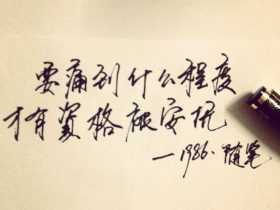 要痛到什么程度
才有资格被安抚
—1986.随笔